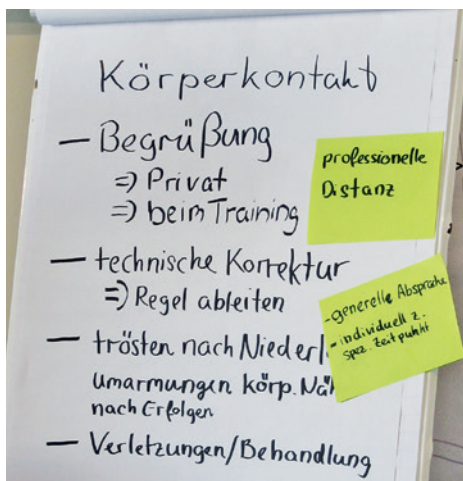 Körperkontakt
— Begrüßung
=> Privat
=> beim Training
— technische Korrektur
=> Regel ableiten
— trösten nach
umarmungen körp.
nach Erfolgen
— Verletzungen/Behandlung
professionelle
Distanz
-generelle Absprache
-individuell z.
spez. Zeitpunkt